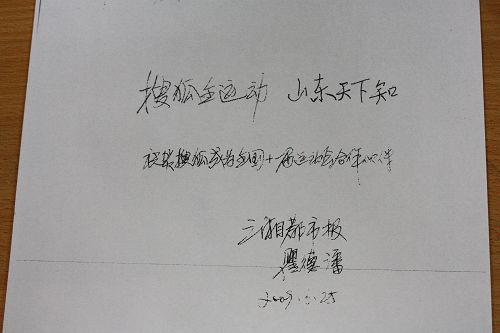 搜狐全运动 山东天下知
祝贺搜狐成为全国十一届运动会合作伙伴
三湘都市报
瞿德潘
2009.